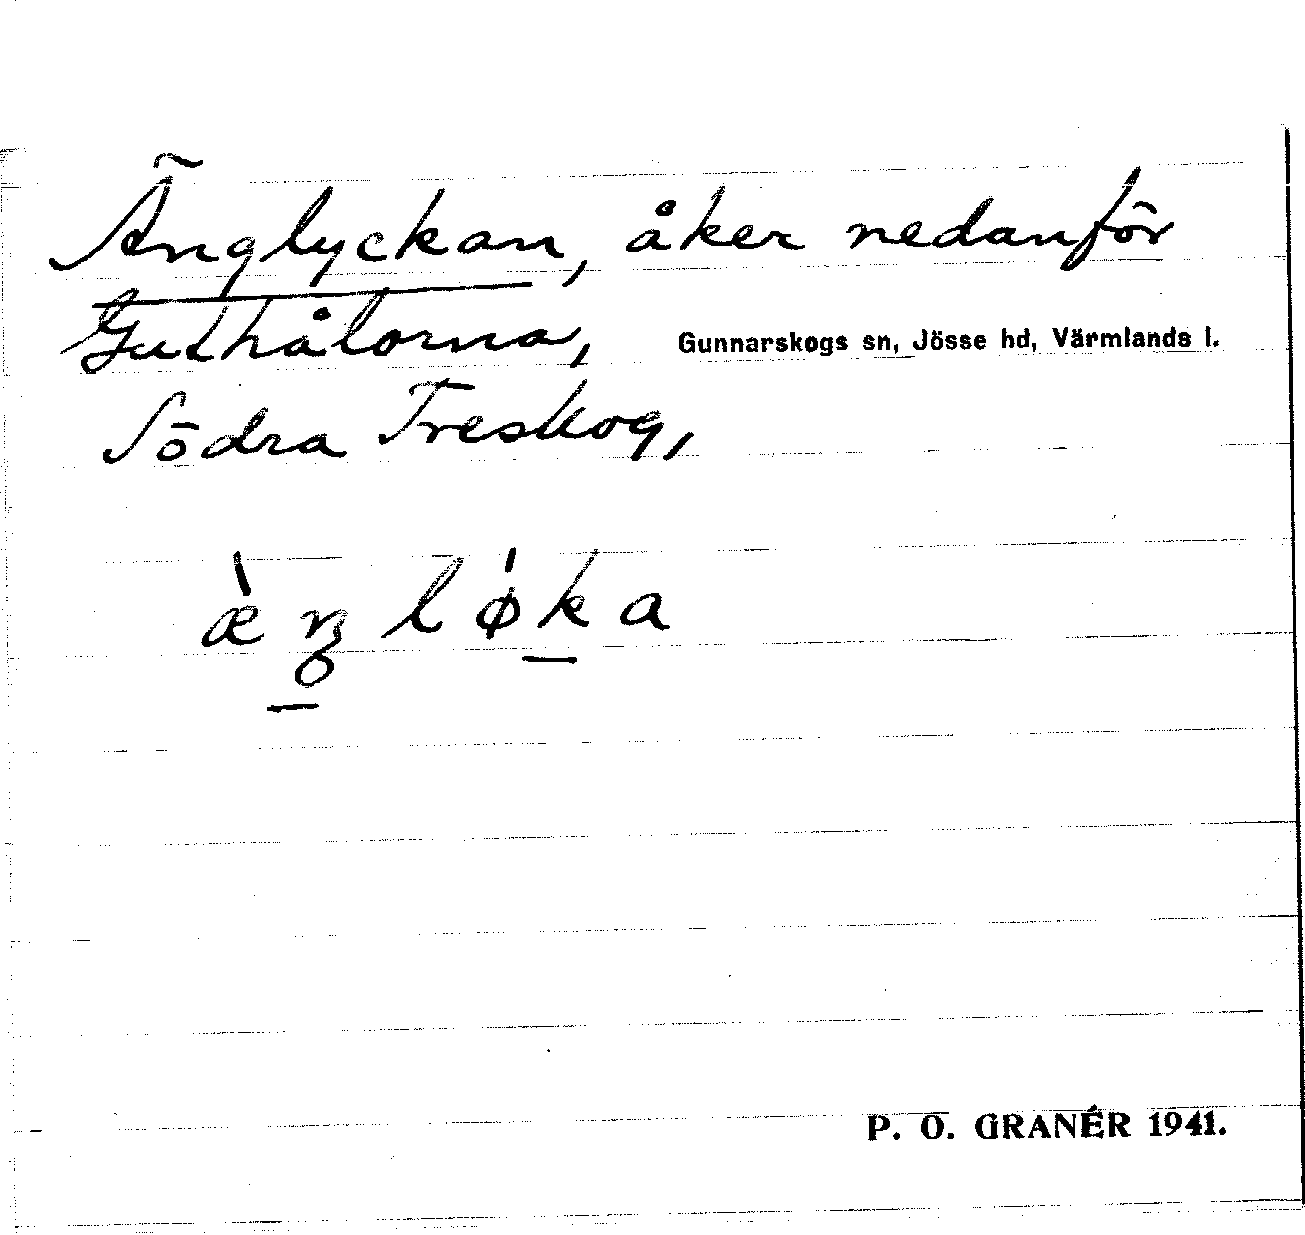 Änglyckan, åker nedanför
Guthålorna, Gunnarskogs sn, Jösse hd, Värmlands l.
Södra Treskog,
P. O. GRANÉR 1941.